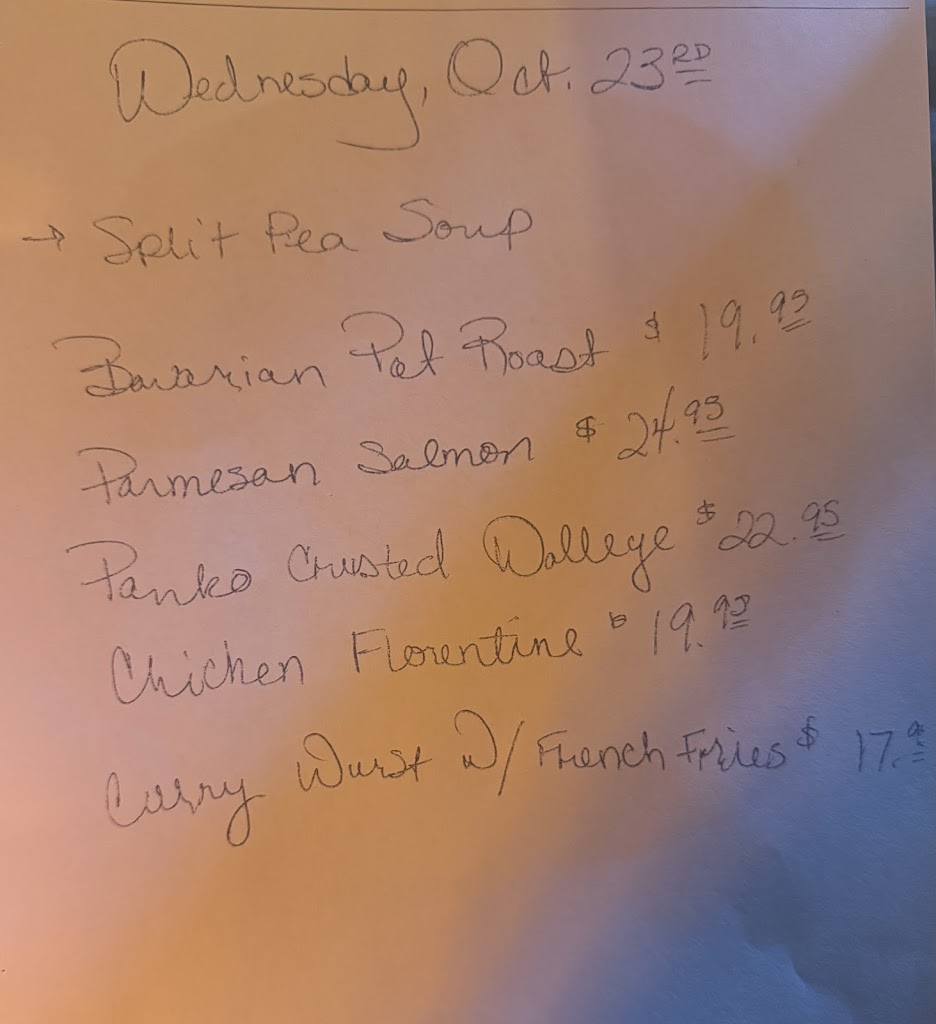 Wednesday, Oct. 23RD
→ Split Pea Soup
Bavarian Pot Roast $ 19.95
Parmesan Salmon $ 24.95
Panko Crusted Walleye $ 22.95
Chicken Florentine $ 19.95
Curry Wurst W/ French Fries $ 17.